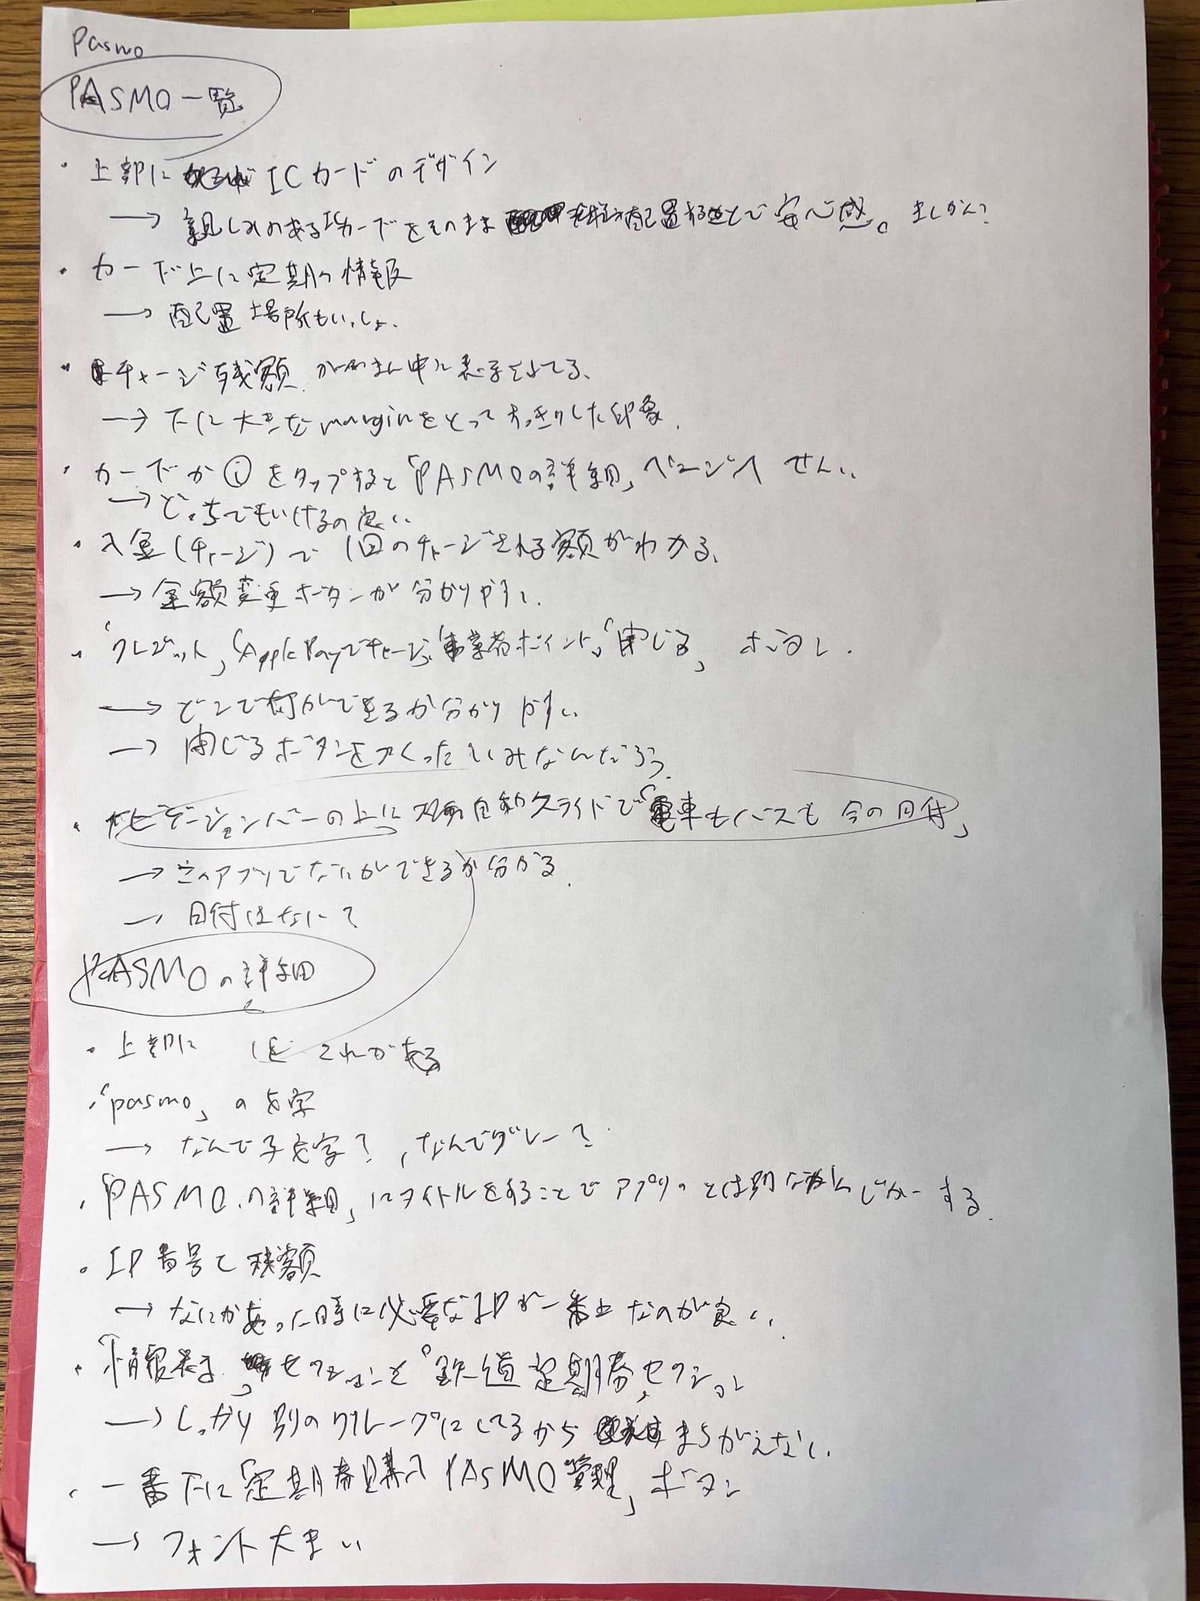 Pasmo
PASMO一覧
・上部に ICカードのデザイン
→ 親しみのあるICカードをそのまま 配置することで安心感。
・カード上に定期の情報
→ 配置場所もいっしょ.
・チャージ残額 がまん中に表示されてる、
→ 下に大きなmarginをとってすっきりした印象.
・カードか ⓘ をタップすると「PASMOの詳細」ページへ せんい.
→ どっちでもいけるの良い.
・入金(チャージ)で 1回のチャージされる額がわかる、
→ 金額変更ボタンが分かりやすい.
・「クレジット」「Apple Payでチャージ」「事業者ポイント」「閉じる」 ボタン.
→ どこで何ができるか分かりやすい
→ 閉じるボタンをつくったいみなんだろう.
・ナビゲーションバーの上に 自動スライドで「電車もバスも 今の日付」
→ アプリでなにができるか分かる.
→ 日付はなに?
PASMOの詳細
・上部に これがある
・「pasmo」の文字
→ なんで子文字?、なんでグレー?
・「PASMOの詳細」にタイトルをすることでアプリのとは別
・ID番号と残額
→ なにかあった時に必要なIDが一番上なのが良い.
・「情報表示」セクションと「鉄道定期券」セクション
→ しっかり別のグループにしてるから まちがえない.
・一番下に「定期券購入 PASMO管理」ボタン
→ フォント大きい